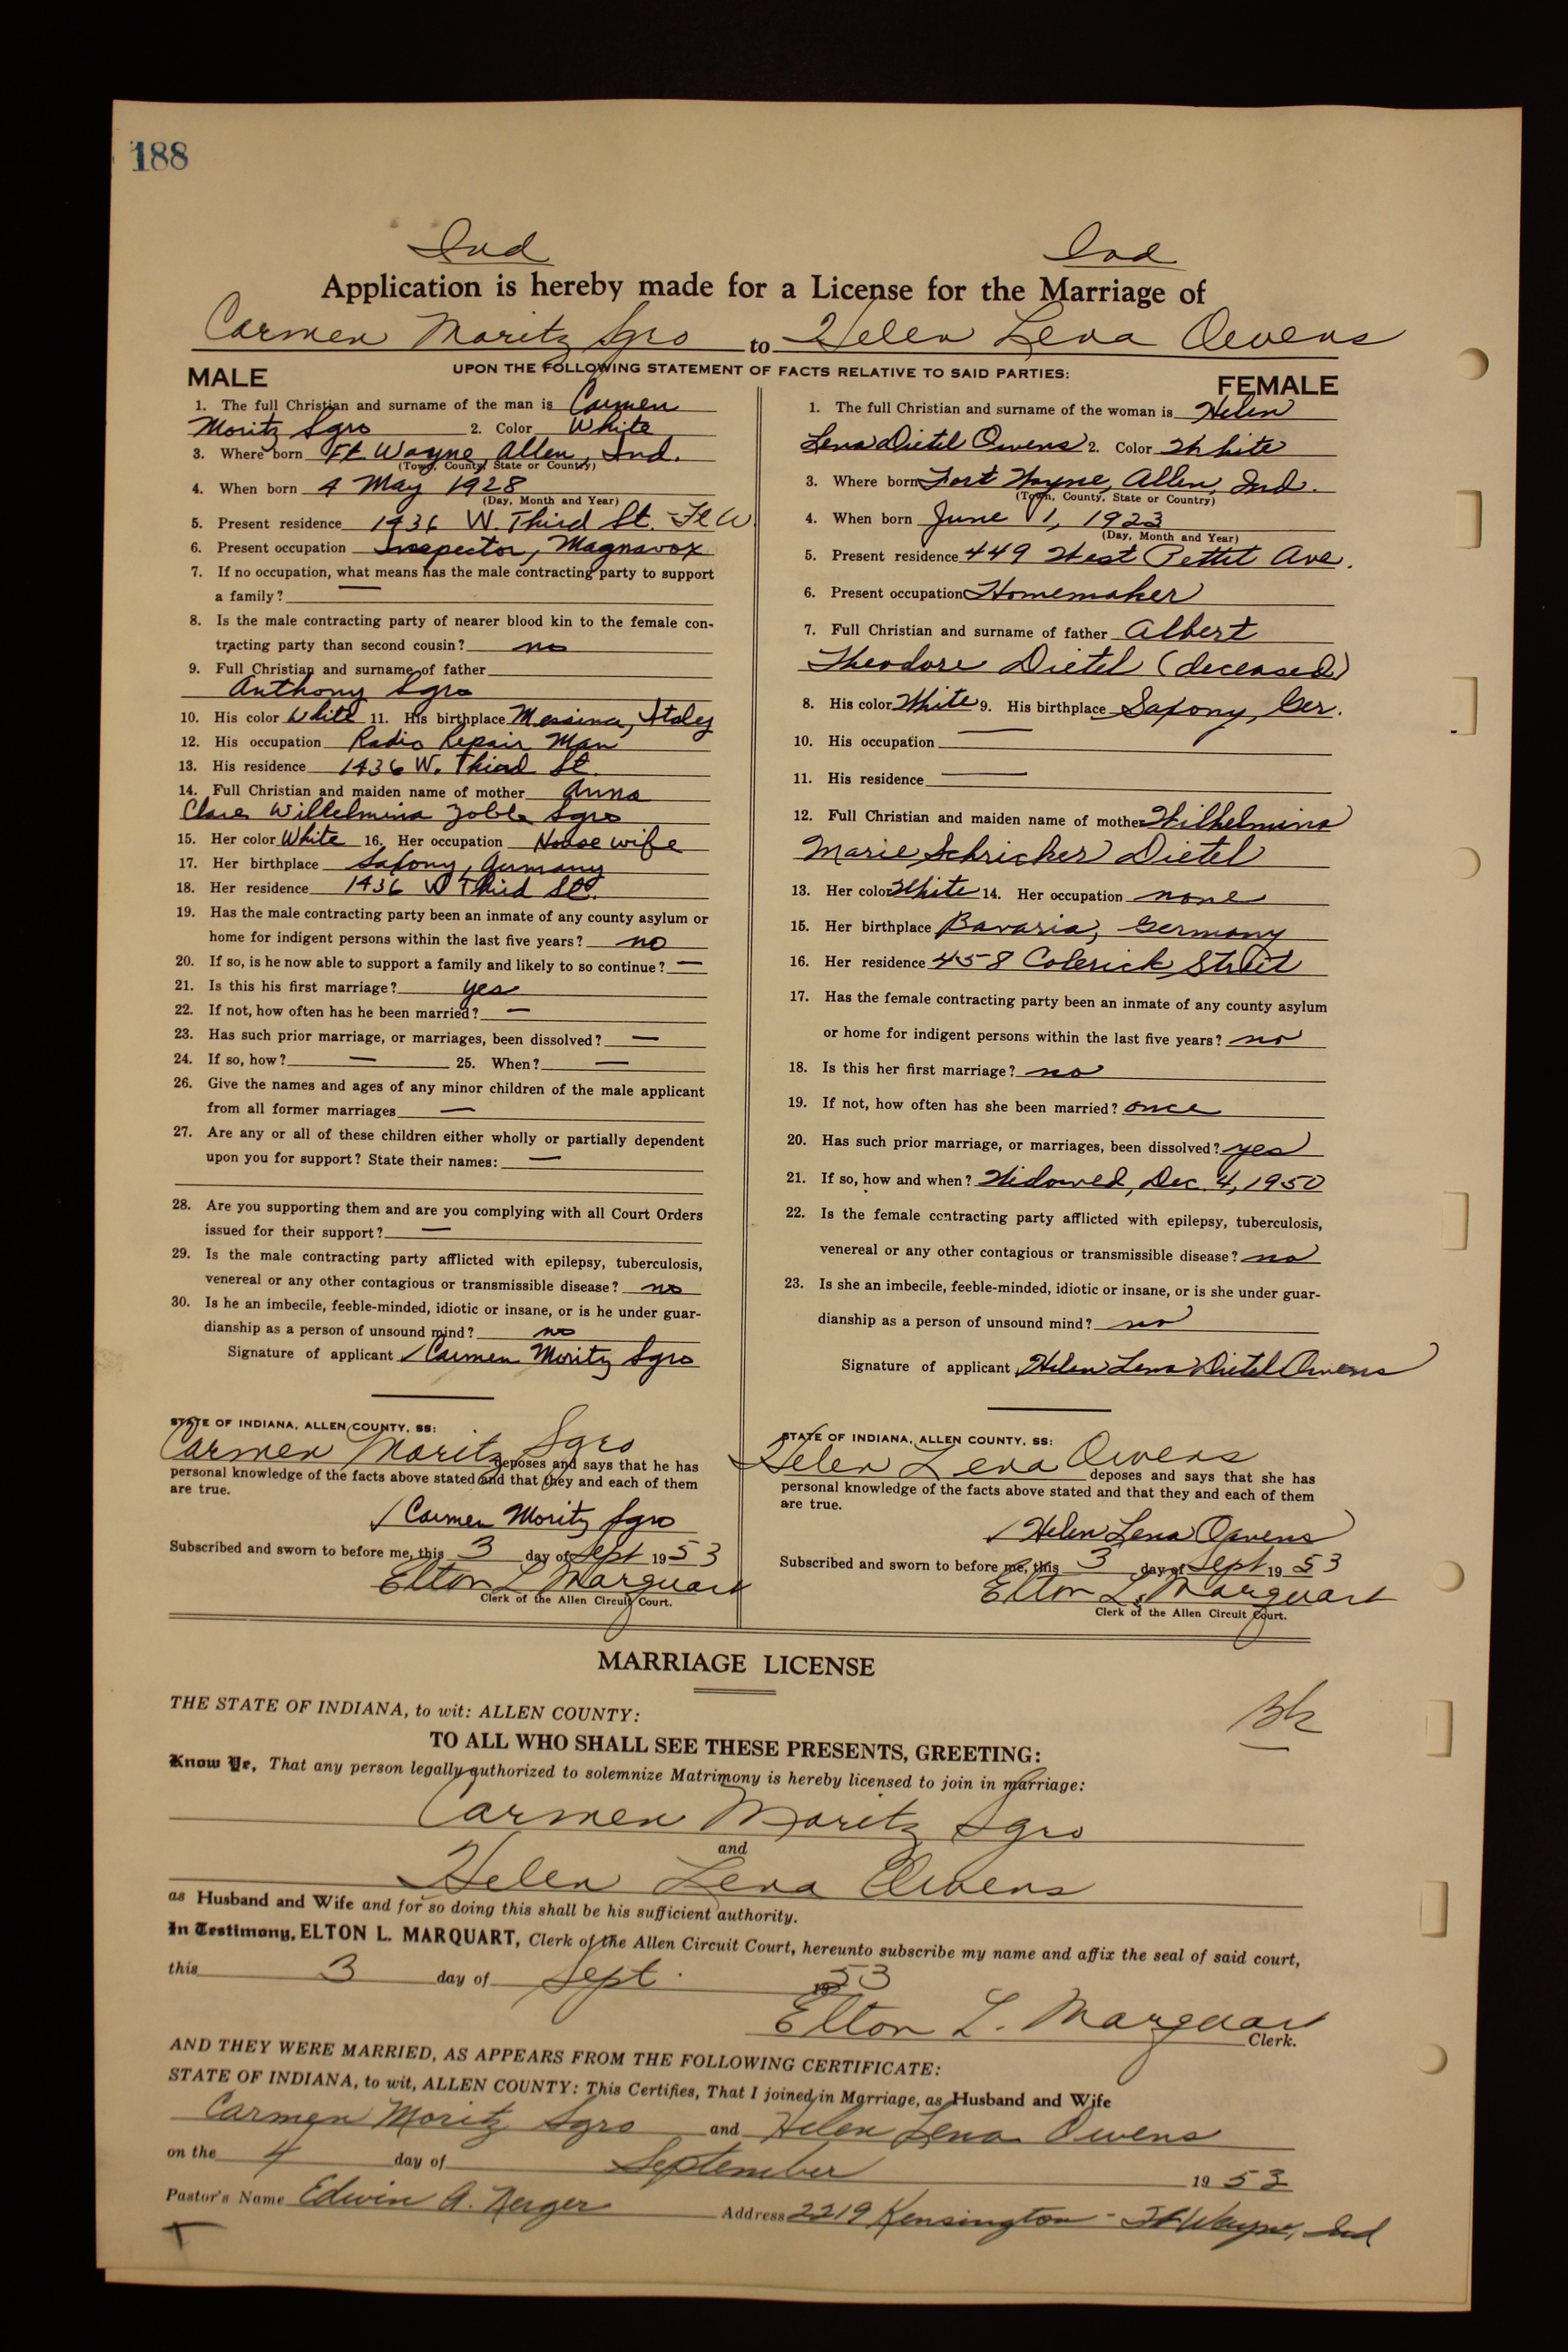 188
Ind Ind
Application is hereby made for a License for the Marriage of
Carmen Moritz Sgro to Helen Lena Owens
UPON THE FOLLOWING STATEMENT OF FACTS RELATIVE TO SAID PARTIES:
MALE
1. The full Christian and surname of the man is Carmen
Moritz Sgro 2. Color White
3. Where born Ft Wayne, Allen, Ind.
(Town, County, State or Country)
4. When born 4 May 1928
(Day, Month and Year)
5. Present residence 1436 W. Third St. Ft W
6. Present occupation Inspector, Magnavox
7. If no occupation, what means has the male contracting party to support
a family? —
8. Is the male contracting party of nearer blood kin to the female con-
tracting party than second cousin? no
9. Full Christian and surname of father
Anthony Sgro
10. His color White 11. His birthplace Messina, Italy
12. His occupation Radio Repair Man
13. His residence 1436 W. Third St.
14. Full Christian and maiden name of mother Anna
Clara Wilhelmina Sgro
15. Her color White 16. Her occupation House wife
17. Her birthplace Saxony, Germany
18. Her residence 1436 W Third St.
19. Has the male contracting party been an inmate of any county asylum or
home for indigent persons within the last five years? no
20. If so, is he now able to support a family and likely to so continue? —
21. Is this his first marriage? yes
22. If not, how often has he been married? —
23. Has such prior marriage, or marriages, been dissolved? —
24. If so, how? — 25. When? —
26. Give the names and ages of any minor children of the male applicant
from all former marriages —
27. Are any or all of these children either wholly or partially dependent
upon you for support? State their names: —
28. Are you supporting them and are you complying with all Court Orders
issued for their support? —
29. Is the male contracting party afflicted with epilepsy, tuberculosis,
venereal or any other contagious or transmissible disease? no
30. Is he an imbecile, feeble-minded, idiotic or insane, or is he under guar-
dianship as a person of unsound mind? no
Signature of applicant Carmen Moritz Sgro
STATE OF INDIANA, ALLEN COUNTY, SS:
Carmen Moritz Sgro deposes and says that he has
personal knowledge of the facts above stated and that they and each of them
are true.
Carmen Moritz Sgro
Subscribed and sworn to before me, this 3 day of Sept 1953
Elton L Marquart
Clerk of the Allen Circuit Court.
FEMALE
1. The full Christian and surname of the woman is Helen
Lena Dietel Owens 2. Color White
3. Where born Fort Wayne, Allen, Ind.
(Town, County, State or Country)
4. When born June 1, 1923
(Day, Month and Year)
5. Present residence 449 West Pettit Ave.
6. Present occupation Homemaker
7. Full Christian and surname of father Albert
Theodore Dietel (deceased)
8. His color White 9. His birthplace Saxony, Ger.
10. His occupation —
11. His residence —
12. Full Christian and maiden name of mother Wilhelmina
Marie Schricker Dietel
13. Her color White 14. Her occupation none
15. Her birthplace Bavaria, Germany
16. Her residence 458 Colerick Street
17. Has the female contracting party been an inmate of any county asylum
or home for indigent persons within the last five years? no
18. Is this her first marriage? no
19. If not, how often has she been married? once
20. Has such prior marriage, or marriages, been dissolved? yes
21. If so, how and when? Widowed, Dec. 4, 1950
22. Is the female contracting party afflicted with epilepsy, tuberculosis,
venereal or any other contagious or transmissible disease? no
23. Is she an imbecile, feeble-minded, idiotic or insane, or is she under guar-
dianship as a person of unsound mind? no
Signature of applicant Helen Lena Dietel Owens
STATE OF INDIANA, ALLEN COUNTY, SS:
Helen Lena Owens deposes and says that she has
personal knowledge of the facts above stated and that they and each of them
are true.
Helen Lena Owens
Subscribed and sworn to before me, this 3 day of Sept 1953
Elton L. Marquart
Clerk of the Allen Circuit Court.
MARRIAGE LICENSE
THE STATE OF INDIANA, to wit: ALLEN COUNTY:
TO ALL WHO SHALL SEE THESE PRESENTS, GREETING:
Know Ye, That any person legally authorized to solemnize Matrimony is hereby licensed to join in marriage:
Carmen Moritz Sgro
and
Helen Lena Owens
as Husband and Wife and for so doing this shall be his sufficient authority.
In Testimony, ELTON L. MARQUART, Clerk of the Allen Circuit Court, hereunto subscribe my name and affix the seal of said court,
this 3 day of Sept. 1953
Elton L. Marquart
Clerk.
AND THEY WERE MARRIED, AS APPEARS FROM THE FOLLOWING CERTIFICATE:
STATE OF INDIANA, to wit, ALLEN COUNTY: This Certifies, That I joined in Marriage, as Husband and Wife
Carmen Moritz Sgro and Helen Lena Owens
on the 4 day of September 1953
Pastor's Name Edwin A. Nerger Address 2219 Kensington - Ft Wayne, Ind